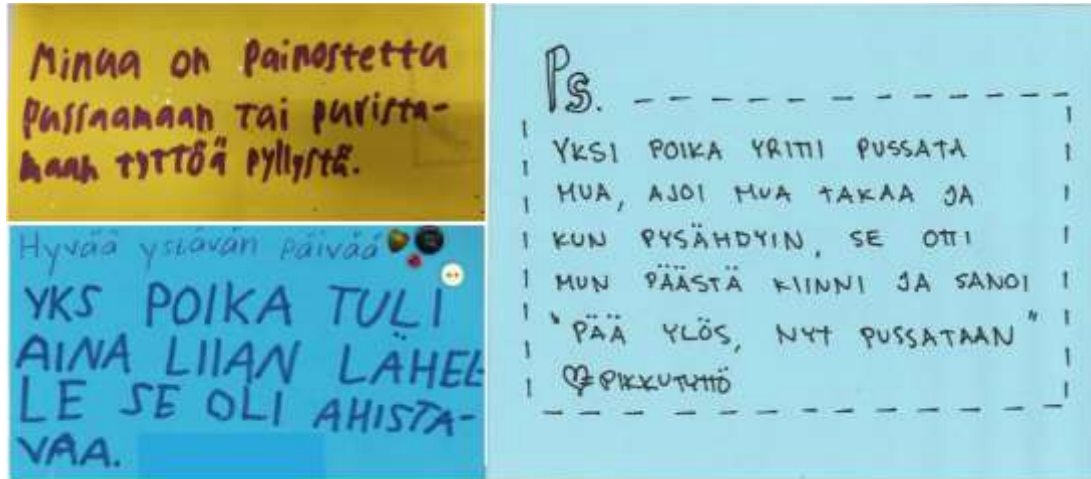 Minua on painostettu
pussaamaan tai purista-
maan tyttöä pyllystä.
Hyvää ystävän päivää
YKS POIKA TULI
AINA LIIAN LÄHEL-
LE SE OLI AHISTA-
VAA.
Ps.
YKSI POIKA YRITTI PUSSATA
MUA, AJOI MUA TAKAA JA
KUN PYSÄHDYIN, SE OTTI
MUN PÄÄSTÄ KIINNI JA SANOI
"PÄÄ YLÖS, NYT PUSSATAAN"
PIKKUTYTTÖ